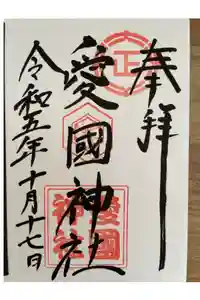 奉拝
愛國神社
令和五年十月十七日
正
愛國
神社